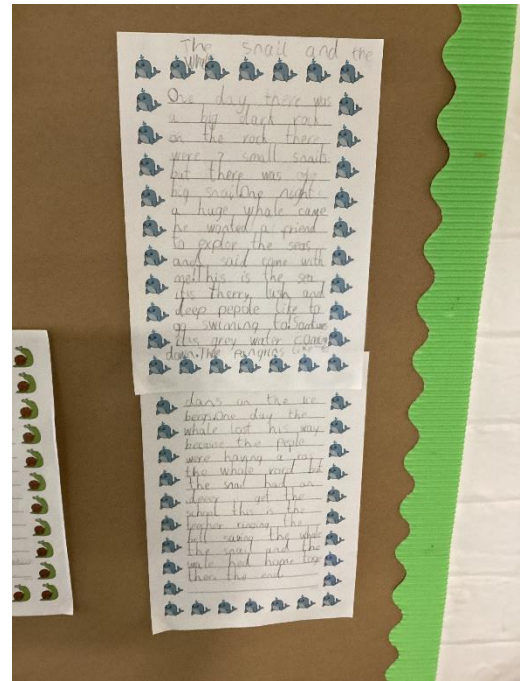 The snail and the
Whale
One day there was
a big dark rock
on the rock there
wire 7 small snails
but there was one
big snail.One night
a huge whale came
he wanted a friend
to explor the seas
and said come with
me!This is the sea
it is therry lush and
deep pepole like to
go swiming to.Somtimes
it is grey water coming
down.The pengins like to
dans on the ice
bergs.One day the
whale lost his way
becose the peple
were having a race
the whale rord but
the snail had an
idear get the
school this is the
teacher ringing the
bell saving the whale
the snail and the
wale hed home toge
ther the end